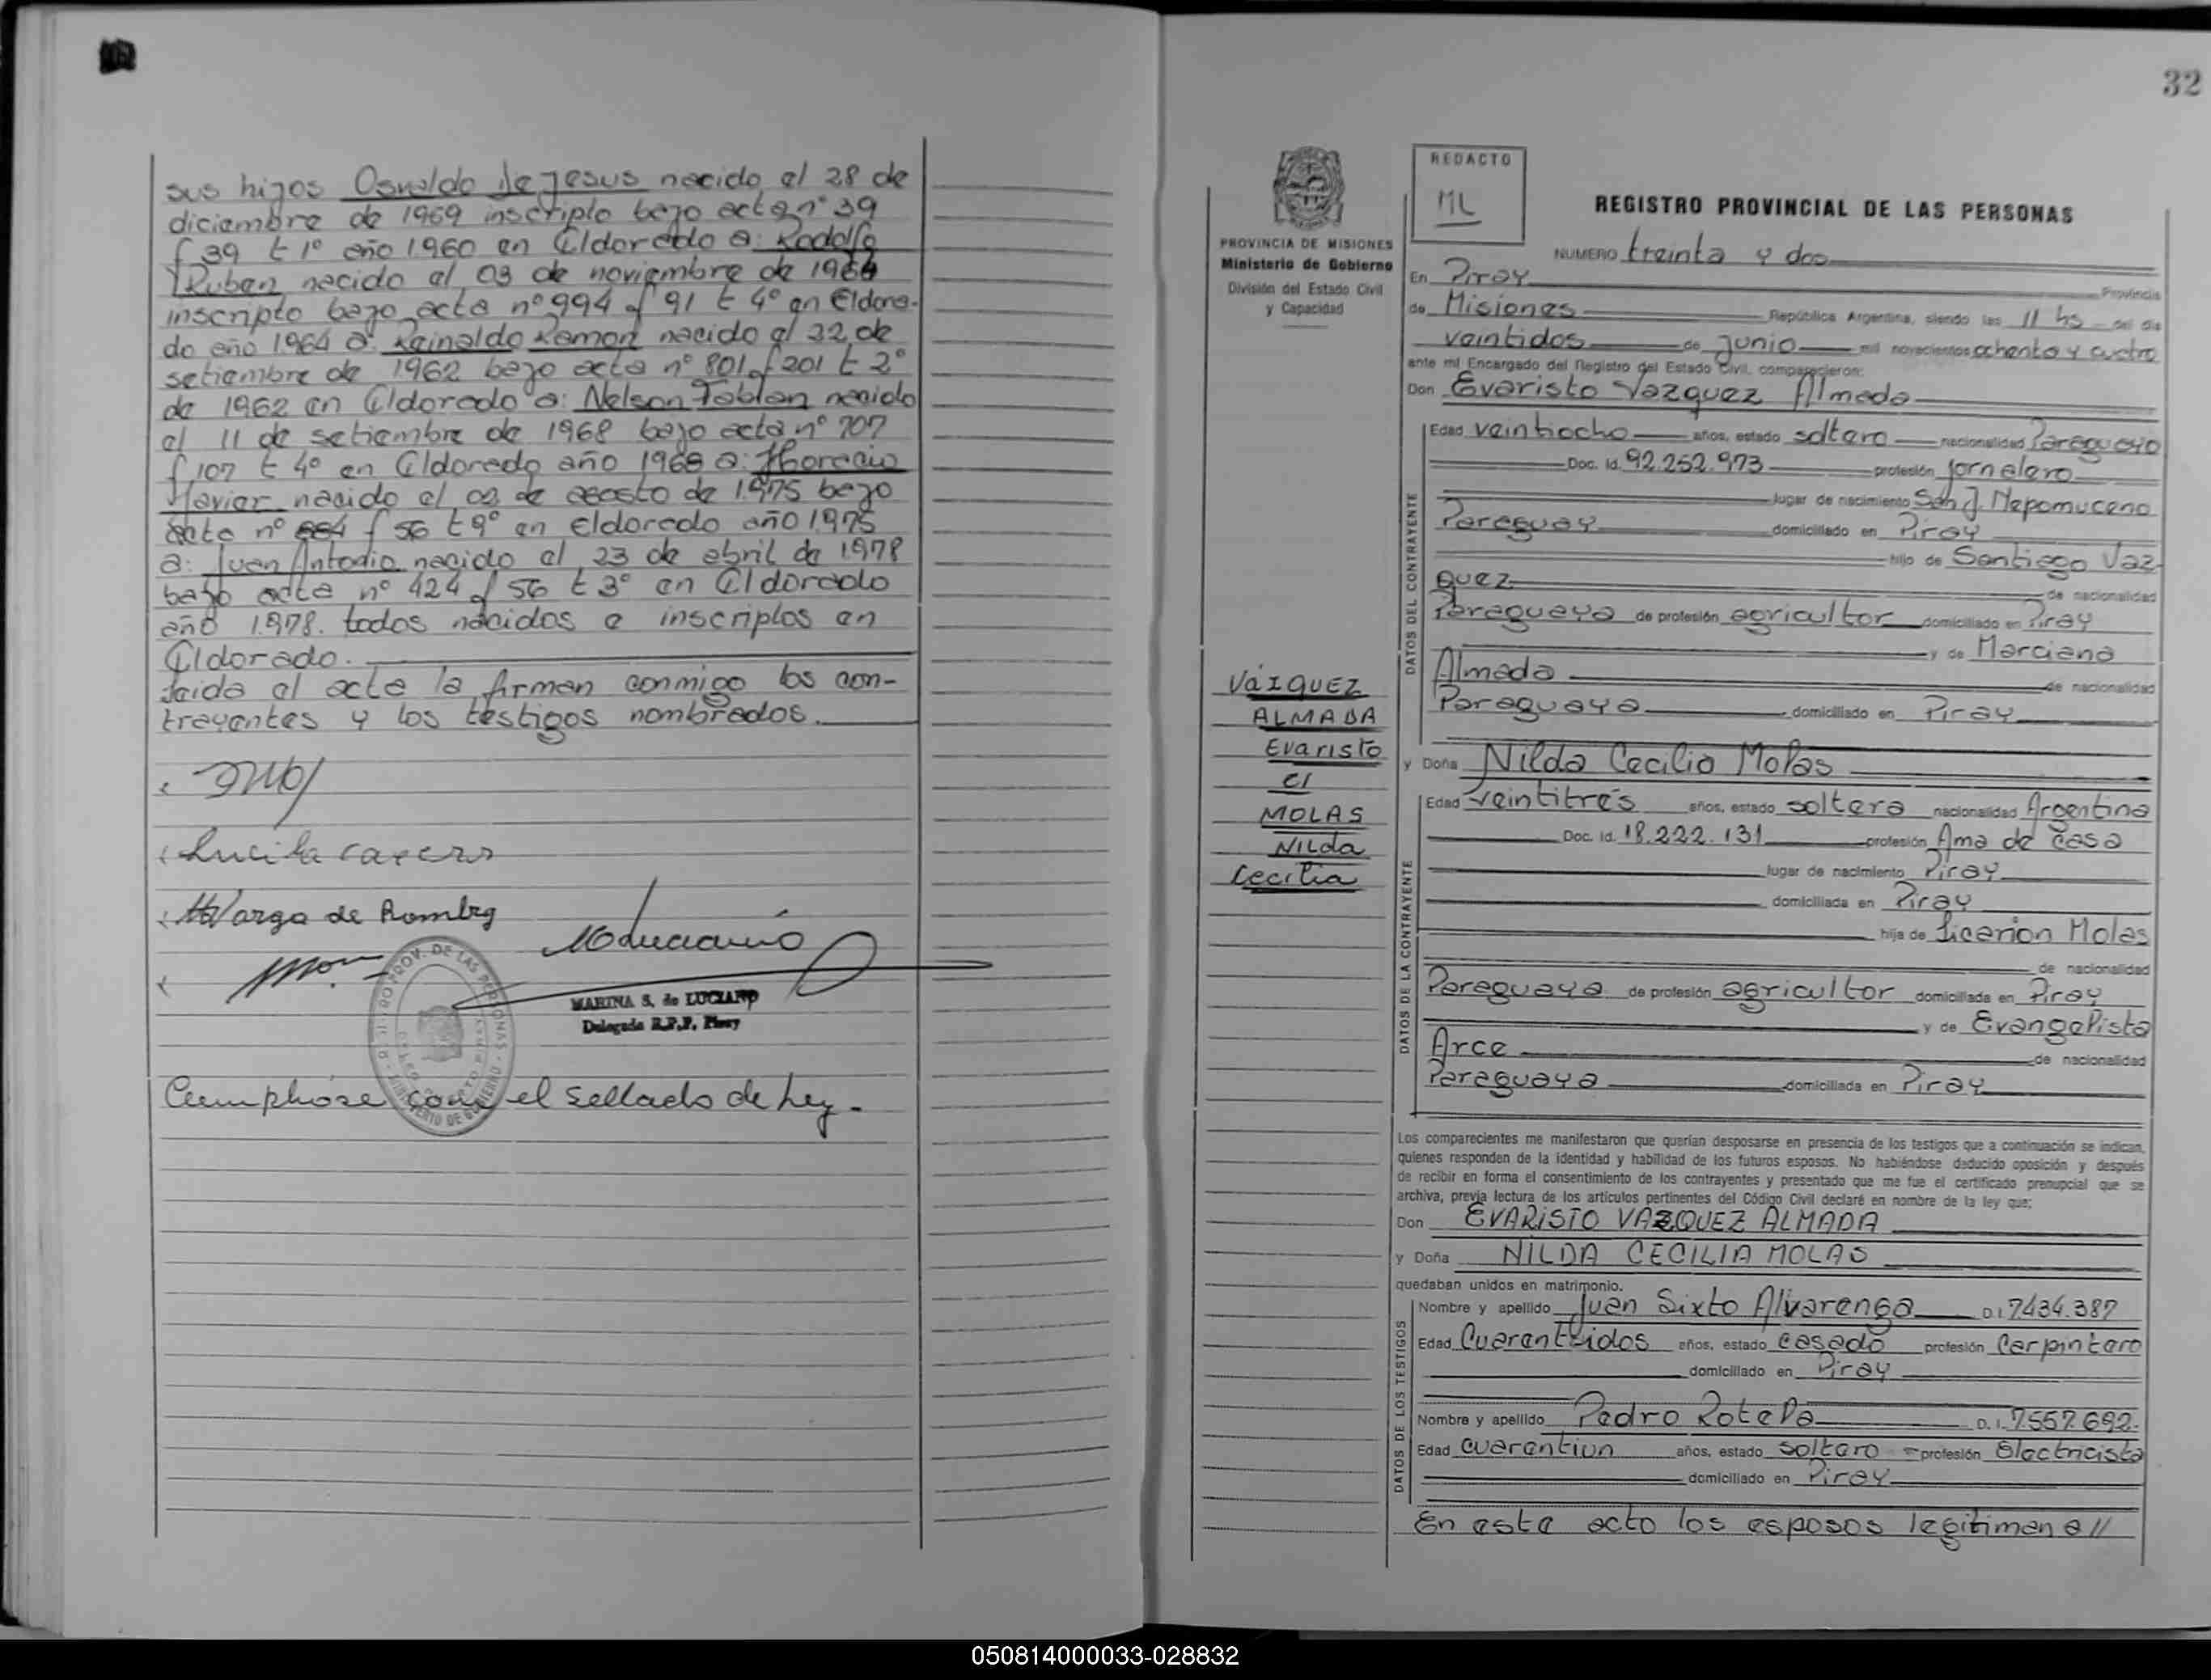 sus hijos Osvaldo de Jesus nacido el 28 de
diciembre de 1969 inscripto bajo acta nº 39
f 39 t 1º año 1960 en Eldorado a: Rodolfo
Ruben nacido el 03 de noviembre de 1964
inscripto bajo acta nº 994 f 91 t 4º en Eldora-
do año 1964 a: Reinaldo Ramon nacido el 22 de
setiembre de 1962 bajo acta nº 801 f 201 t 2º
de 1962 en Eldorado a: Nelson Fabian nacido
el 11 de setiembre de 1968 bajo acta nº 707
f 107 t 4º en Eldorado año 1968 a: Horacio
Javier nacido el 02 de agosto de 1.975 bajo
acta nº 884 f 56 t 9º en Eldorado año 1975
a: Juan Antonio nacido el 23 de abril de 1978
bajo acta nº 424 f 56 t 3º en Eldorado
año 1.978. todos nacidos e inscriptos en
Eldorado.
Leida el acta la firman conmigo los con-
trayentes y los testigos nombrados.
Lucila
Warga de Romberg
MARINA S. de LUCIANO
Delegada R.P.P. Piray
Cumplióse con el sellado de Ley.-
32
REDACTO
ML
PROVINCIA DE MISIONES
Ministerio de Gobierno
División del Estado Civil
y Capacidad
REGISTRO PROVINCIAL DE LAS PERSONAS
NUMERO treinta y dos
En Piray Provincia
de Misiones República Argentina, siendo las 11 hs del día
veintidos de junio mil novecientos ochenta y cuatro
ante mí Encargado del Registro del Estado Civil, comparecieron:
Don Evaristo Vazquez Almada
Edad veintiocho años, estado soltero nacionalidad Paraguayo
Doc. Id. 92.252.973 profesión jornalero
lugar de nacimiento San J. Nepomuceno
Paraguay domiciliado en Piray
hijo de Santiago Vaz-
quez de nacionalidad
Paraguaya de profesión agricultor domiciliado en Piray
y de Marciana
Almada de nacionalidad
Paraguaya domiciliado en Piray
DATOS DEL CONTRAYENTE
VÁZQUEZ
ALMADA
Evaristo
C/
MOLAS
Nilda
Cecilia
y Doña Nilda Cecilia Molas
Edad veintitrés años, estado soltera nacionalidad Argentina
Doc. Id. 18.222.131 profesión Ama de Casa
lugar de nacimiento Piray
domiciliada en Piray
hija de Licerion Molas
de nacionalidad
Paraguaya de profesión agricultor domiciliada en Piray
y de Evangelista
Arce de nacionalidad
Paraguaya domiciliada en Piray
DATOS DE LA CONTRAYENTE
Los comparecientes me manifestaron que querían desposarse en presencia de los testigos que a continuación se indican,
quienes responden de la identidad y habilidad de los futuros esposos. No habiéndose deducido oposición y después
de recibir en forma el consentimiento de los contrayentes y presentado que me fue el certificado prenupcial que se
archiva, previa lectura de los artículos pertinentes del Código Civil declaré en nombre de la ley que:
Don EVARISTO VAZQUEZ ALMADA
y Doña NILDA CECILIA MOLAS
quedaban unidos en matrimonio.
Nombre y apellido Juan Sixto Alvarenga D.I 7434.387
Edad Cuarentidos años, estado casado profesión Carpintero
domiciliado en Piray
Nombre y apellido Pedro Rotela D.I. 7.557.692.
Edad cuarentiun años, estado soltero profesión Electricista
domiciliado en Piray
DATOS DE LOS TESTIGOS
En este acto los esposos legitiman a //
050814000033-028832